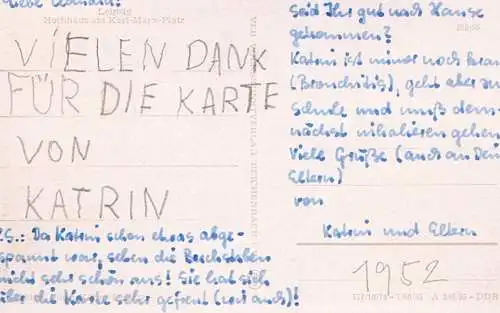 Liebe
Leipzig
Hochhaus am Karl-Marx-Platz
VIELEN DANK
FÜR DIE KARTE
VON
KATRIN
P.S.: Da Katrin schon etwas abge-
spannt war, sehen die Buchstaben
nicht sehr schön aus! Sie hat sich
über die Karte sehr gefreut (wir auch)!
Seid Ihr gut nach Hause
gekommen?
Katrin ist immer noch
(Bronchitis), geht aber
Schule und muß dem-
nächst inhalieren gehen
Viele Grüße (auch an Dei
Eltern)
von
Katrin und Eltern
1952
DDR